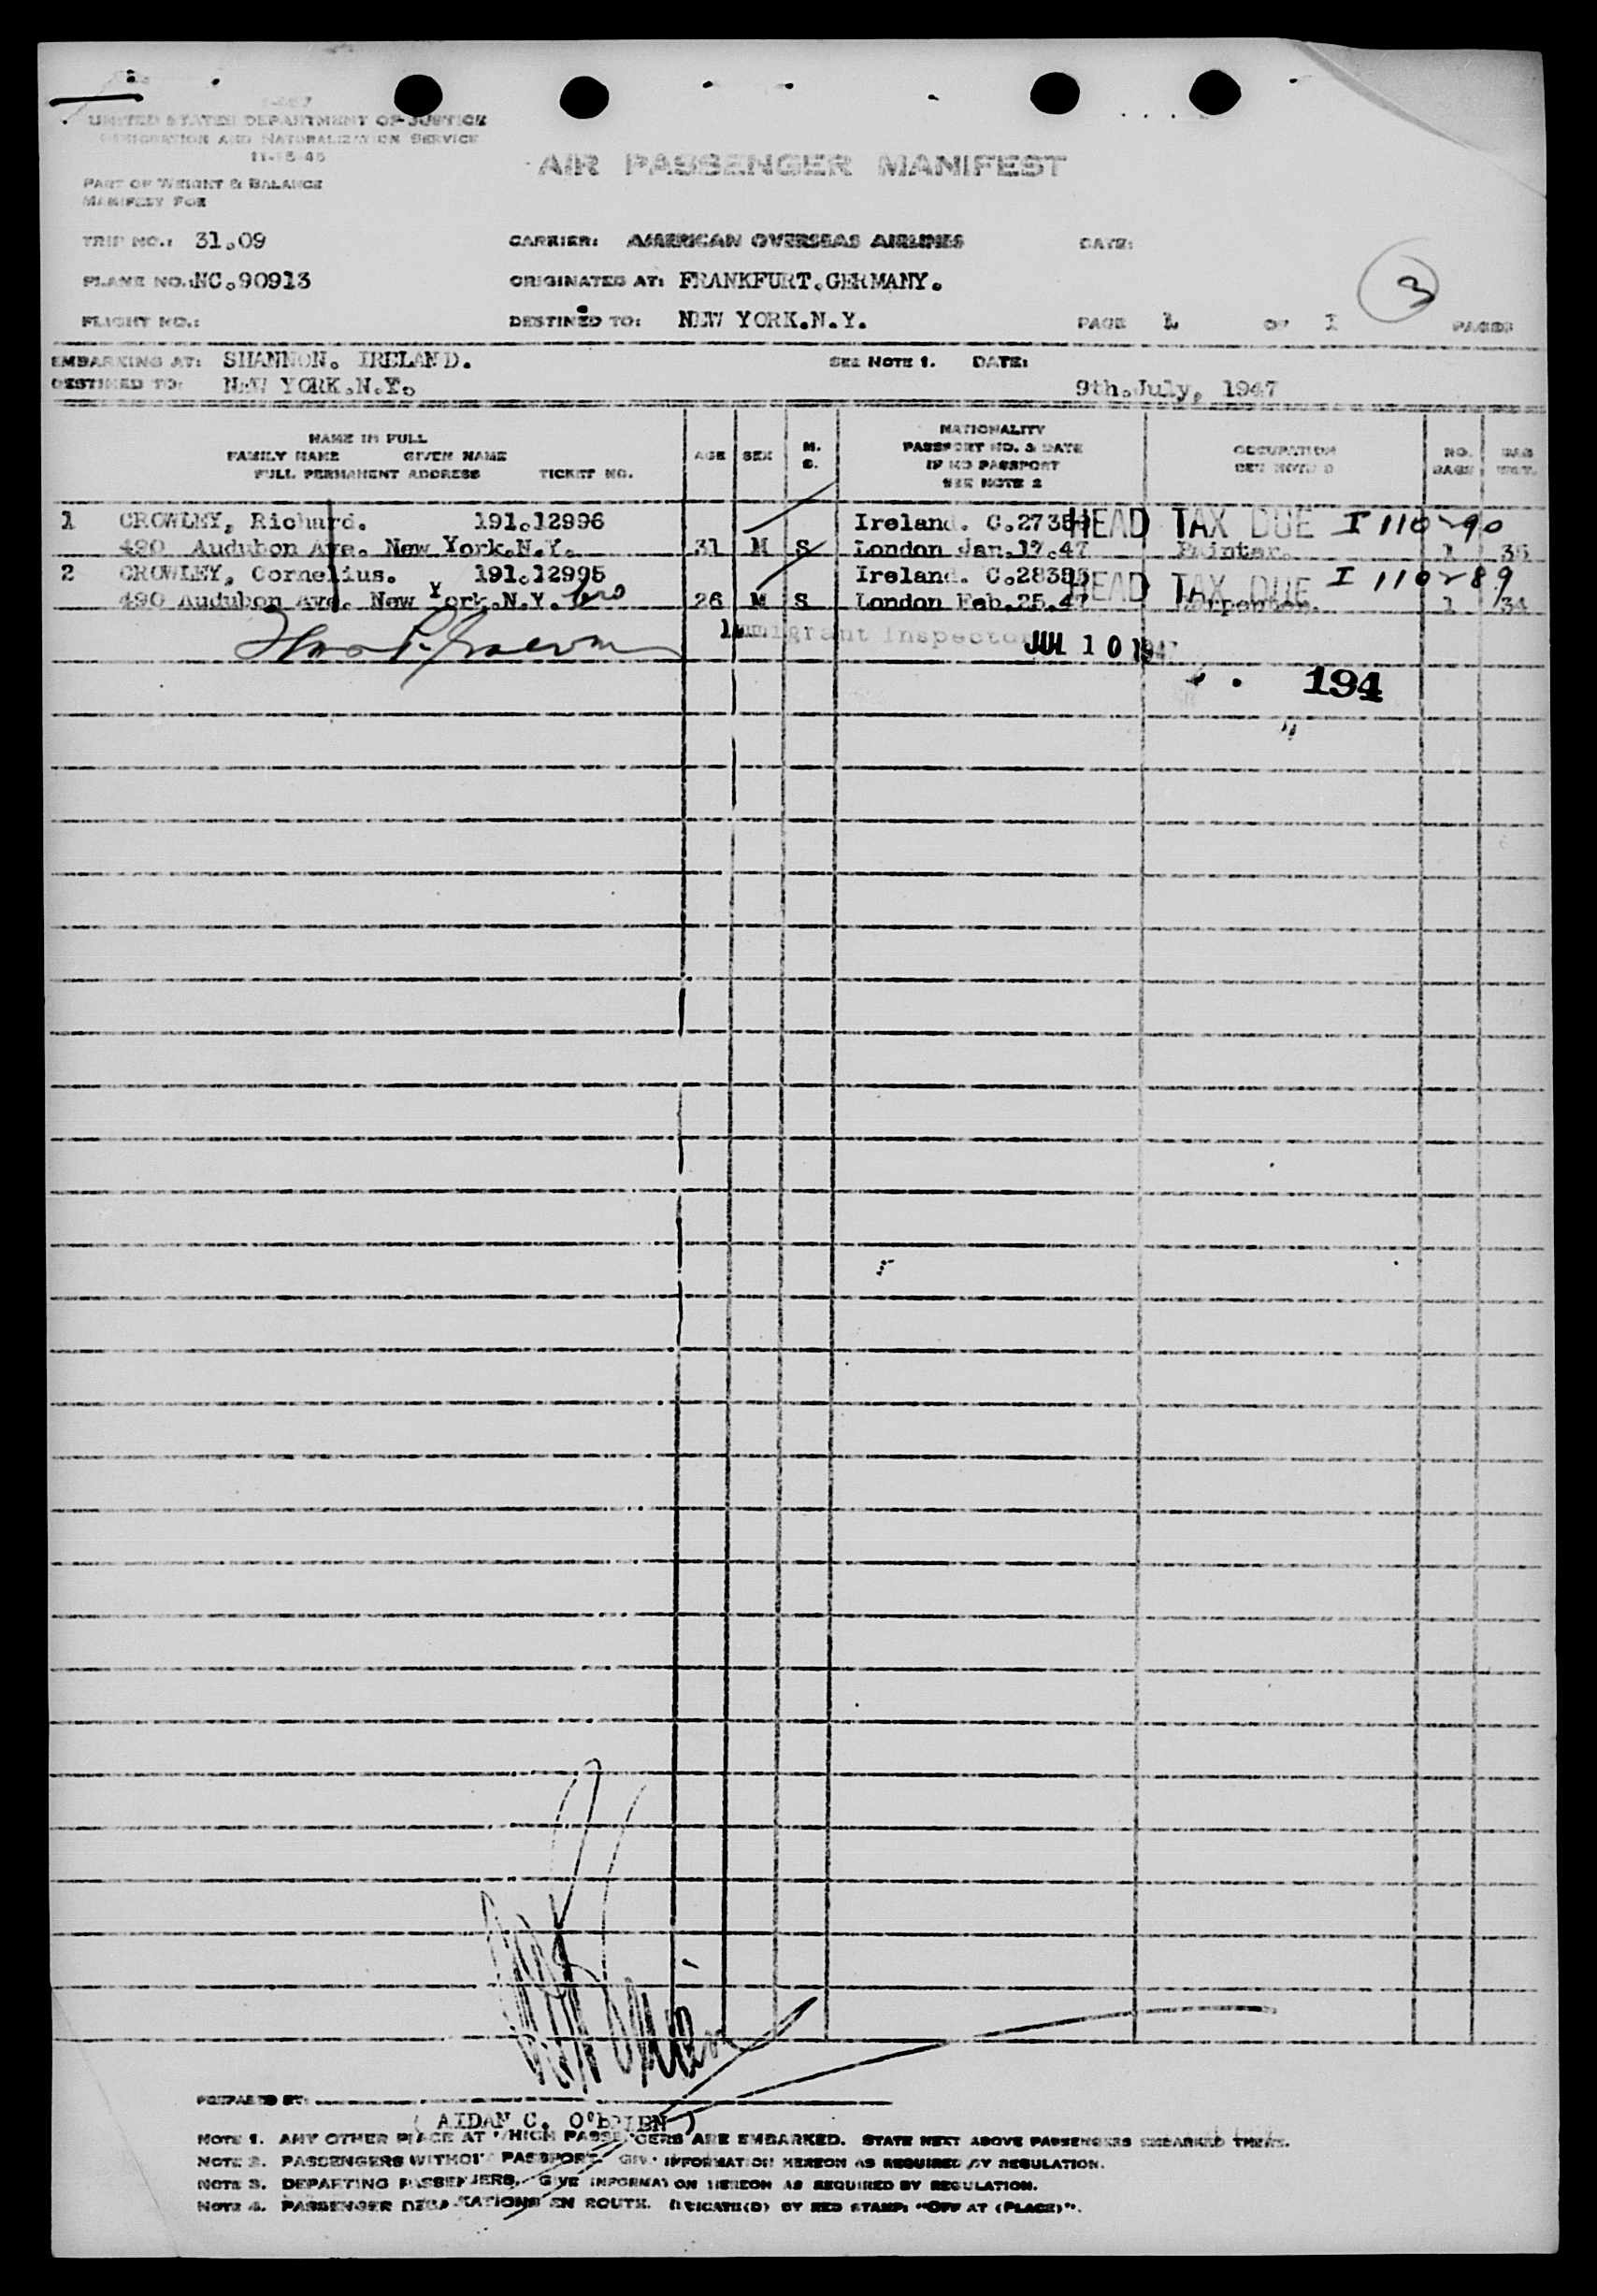 UNITED STATES DEPARTMENT OF JUSTICE
IMMIGRATION AND NATURALIZATION SERVICE
11-15-45
AIR PASSENGER MANIFEST
PART OF WEIGHT & BALANCE
MANIFEST FOR
TRIP NO.: 31.09 CARRIER: AMERICAN OVERSEAS AIRLINES DATE:
PLANE NO.: NC.90913 ORIGINATED AT: FRANKFURT.GERMANY. 3
FLIGHT NO.: DESTINED TO: NEW YORK.N.Y. PAGE 1 OF 1 PAGES
EMBARKING AT: SHANNON. IRELAND. SEE NOTE 1. DATE:
DESTINED TO: NEW YORK.N.Y. 9th.July, 1947
NAME IN FULL
FAMILY NAME GIVEN NAME
FULL PERMANENT ADDRESS TICKET NO.
AGE SEX M. S.
NATIONALITY
PASSPORT NO. & DATE
IF NO PASSPORT
SEE NOTE 2
OCCUPATION
SEE NOTE 3
NO. BAGS BAG WGT.
1 CROWLEY, Richard. 191.12996 Ireland. HEAD TAX DUE I 110290
490 Audubon Ave. New York.N.Y. 31 M S London Jan.17.47 Painter. 1 35
2 CROWLEY, Cornelius. 191.12995 Ireland. HEAD TAX DUE I 110289
490 Audubon Ave. New York.N.Y. 26 M S London Feb.25.47 Carpenter. 1 34
Immigrant Inspector JUL 10 1947
194
PREPARED BY:
( AIDAN C. O'BRIEN )
NOTE 1. ANY OTHER PLACE AT WHICH PASSENGERS ARE EMBARKED. STATE NEXT ABOVE PASSENGERS EMBARKED THERE.
NOTE 2. PASSENGERS WITHOUT PASSPORT. GIVE INFORMATION HEREON AS REQUIRED BY REGULATION.
NOTE 3. DEPARTING PASSENGERS. GIVE INFORMATION HEREON AS REQUIRED BY REGULATION.
NOTE 4. PASSENGER DEBARKATIONS EN ROUTE. INDICATE(D) BY RED STAMP: "OFF AT (PLACE)".